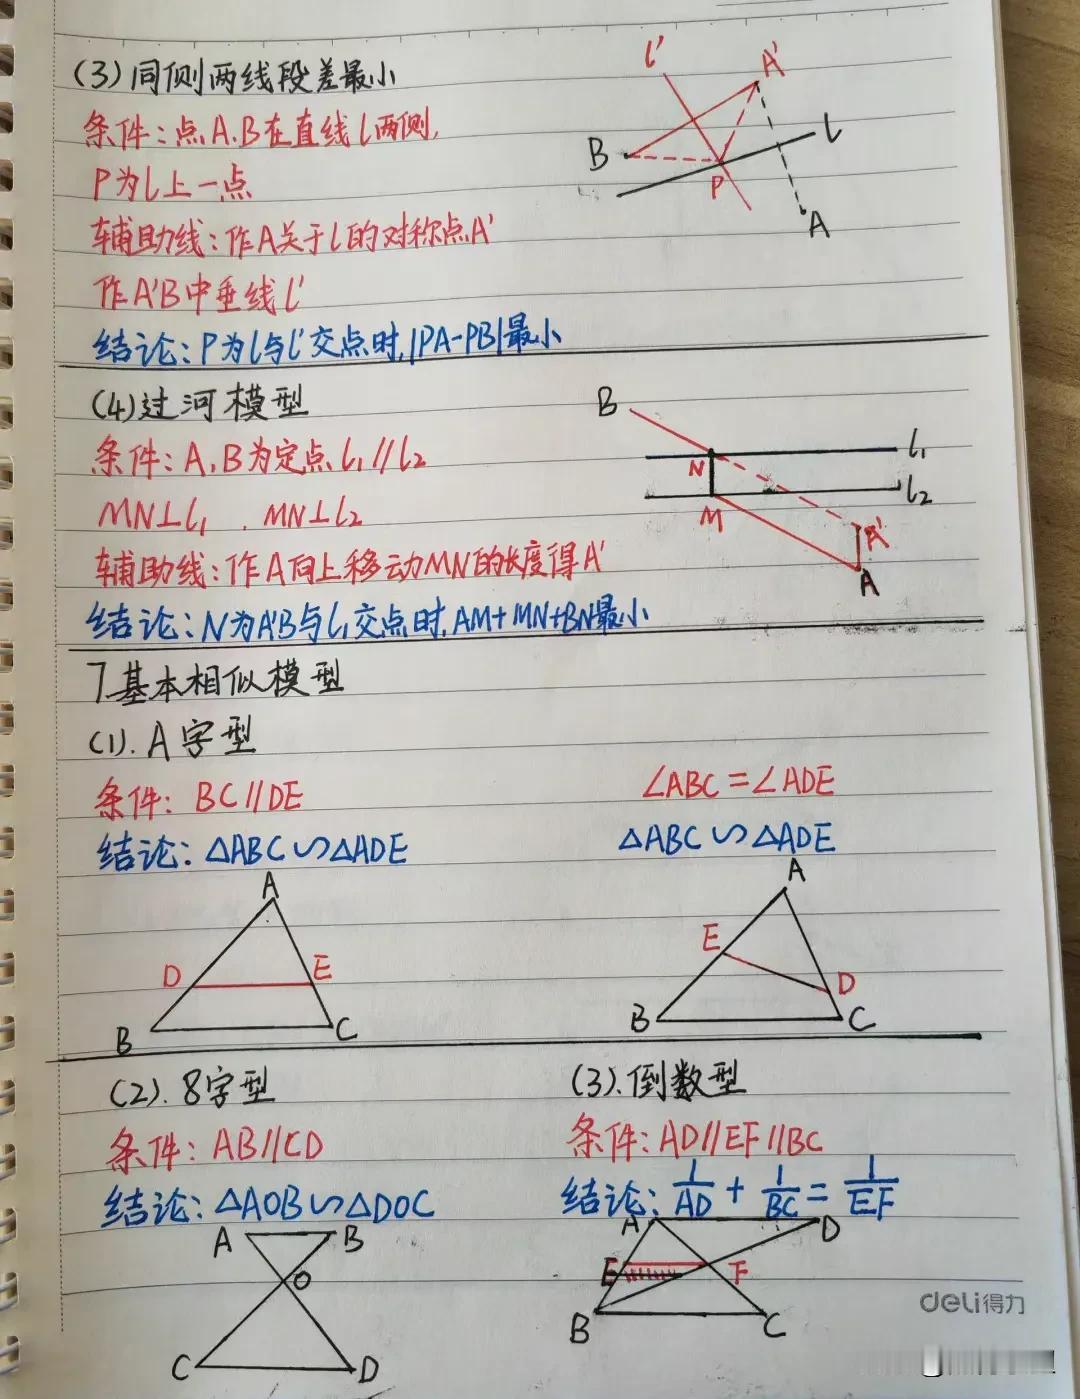 (3)同侧两线段差最小
条件:点A.B在直线l两侧,
P为l上一点
辅助线:作A关于l的对称点A'
作A'B中垂线l'
结论:P为l与l'交点时,|PA-PB|最小
l'
A'
B
l
P
A
(4)过河模型
条件:A,B为定点 l₁∥l₂
MN⊥l₁ , MN⊥l₂
辅助线:作A向上移动MN的长度得A'
结论:N为A'B与l₁交点时,AM+MN+BN最小
B
l₁
N
l₂
M
A'
A
7.基本相似模型
(1).A字型
条件: BC∥DE
∠ABC=∠ADE
结论: △ABC∽△ADE
△ABC∽△ADE
A
D
E
B
C
A
E
D
B
C
(2).8字型
(3).倒数型
条件: AB∥CD
条件:AD∥EF∥BC
结论: △AOB∽△DOC
结论: 1/AD + 1/BC = 1/EF
A
B
O
C
D
A
D
E
F
B
C
deli得力